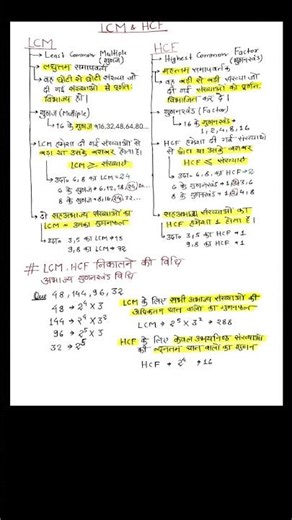 LCM & HCF
LCM
Least Common Multiple
(गुणज)
लघुत्तम समापवर्त्य
वह छोटी से छोटी संख्या जो
दी गई संख्याओं से पूर्णतः
विभाज्य हो।
गुणज (Multiple)
16 के गुणज → 16,32,48,64,80...
LCM हमेशा दी गई संख्याओं से
बड़ा या उसके बराबर होता है।
LCM ≥ संख्याएं
उदा० 6, 8 का LCM = 24
6 के गुणज → 6,12,18,24,30...
8 के गुणज → 8,16,24,32...
दो सहअभाज्य संख्याओं का
LCM = उनका गुणनफल
उदा० 3,5 का LCM → 15
9,8 का LCM → 72
HCF
Highest Common Factor
(गुणनखंड)
महत्तम समापवर्तक
वह बड़ी से बड़ी संख्या जो
दी गई संख्याओं को पूर्णतः
विभाजित कर दे।
गुणनखंड (Factor)
16 के गुणनखंड →
1, 2, 4, 8, 16
HCF हमेशा दी गई संख्याओं
से छोटा या उसके बराबर
HCF ≤ संख्याएं
उदा० 6, 8 का HCF → 2
6 के गुणनखंड → 1,2,3,6
8 के गुणनखंड → 1,2,4,8
सहअभाज्य संख्याओं का
HCF हमेशा 1 होता है।
उदा० 3,5 का HCF → 1
9,8 का HCF → 1
# LCM, HCF निकालने की विधि
अभाज्य गुणनखंड विधि
Que 48, 144, 96, 32
48 → 2⁴ × 3
144 → 2⁴ × 3²
96 → 2⁵ × 3
32 → 2⁵
LCM के लिए सभी अभाज्य संख्याओं की
अधिकतम घात वालों का गुणनफल
LCM → 2⁵ × 3² → 288
HCF के लिए केवल उभयनिष्ठ संख्याओं
की न्यूनतम घात वालों का गुणन
HCF → 2⁴ → 16